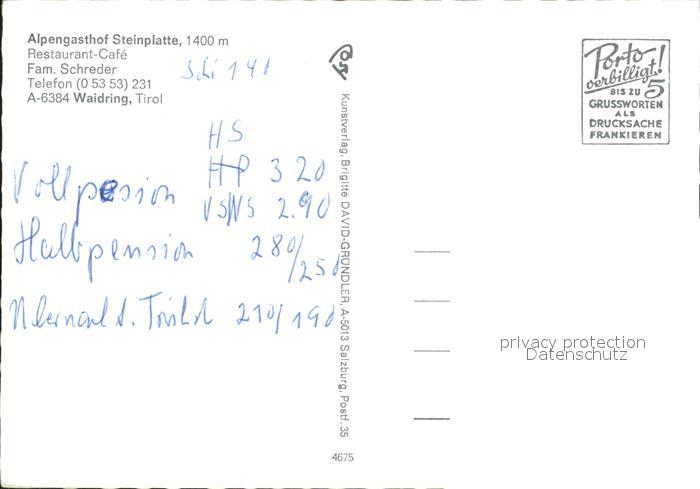 Alpengasthof Steinplatte, 1400 m
Restaurant-Café
Fam. Schreder
Telefon (0 53 53) 231
A-6384 Waidring, Tirol
HS
HP 320
Vollpesion
VS/NS 2.90
Halbpension 280/250
210/190
Kunstverlag, Brigitte DAVID-GRÜNDLER, A-5013 Salzburg, Postf. 35
4675
Porto verbilligt!
BIS ZU 5
GRUSSWORTEN
ALS
DRUCKSACHE
FRANKIEREN
privacy protection
Datenschutz